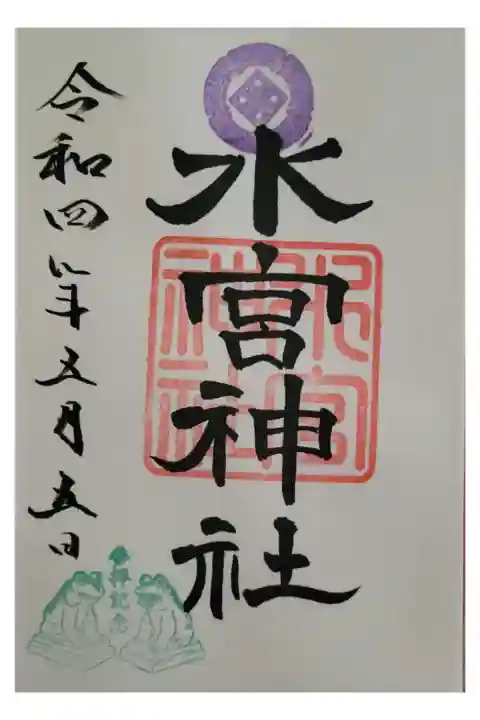 水宮神社
水宮
神社
令和四年五月五日
参拝記念